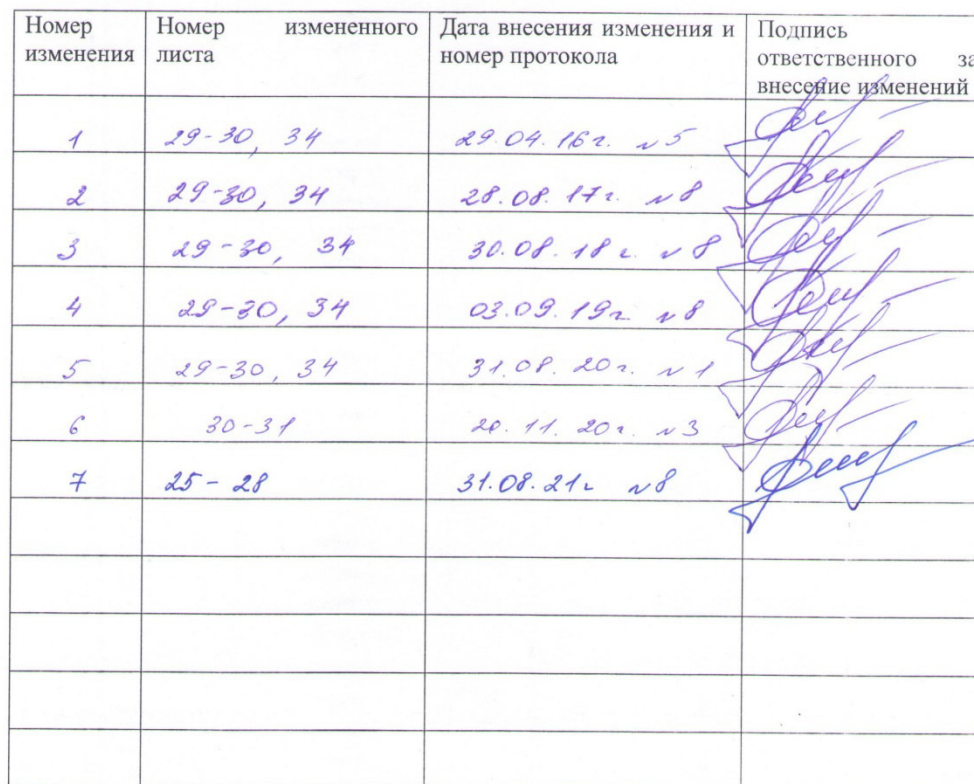 Номер изменения Номер измененного листа Дата внесения изменения и номер протокола Подпись ответственного за внесение изменений
1 29-30, 34 29.04.16г. №5
2 29-30, 34 28.08.17г. №8
3 29-30, 34 30.08.18г. №8
4 29-30, 34 03.09.19г №8
5 29-30, 34 31.08.20г. №1
6 30-31 20.11.20г. №3
7 25-28 31.08.21г №8